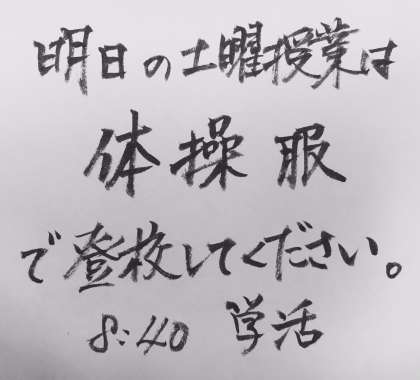 明日の土曜授業は
体操服
で登校してください。
8:40 学活